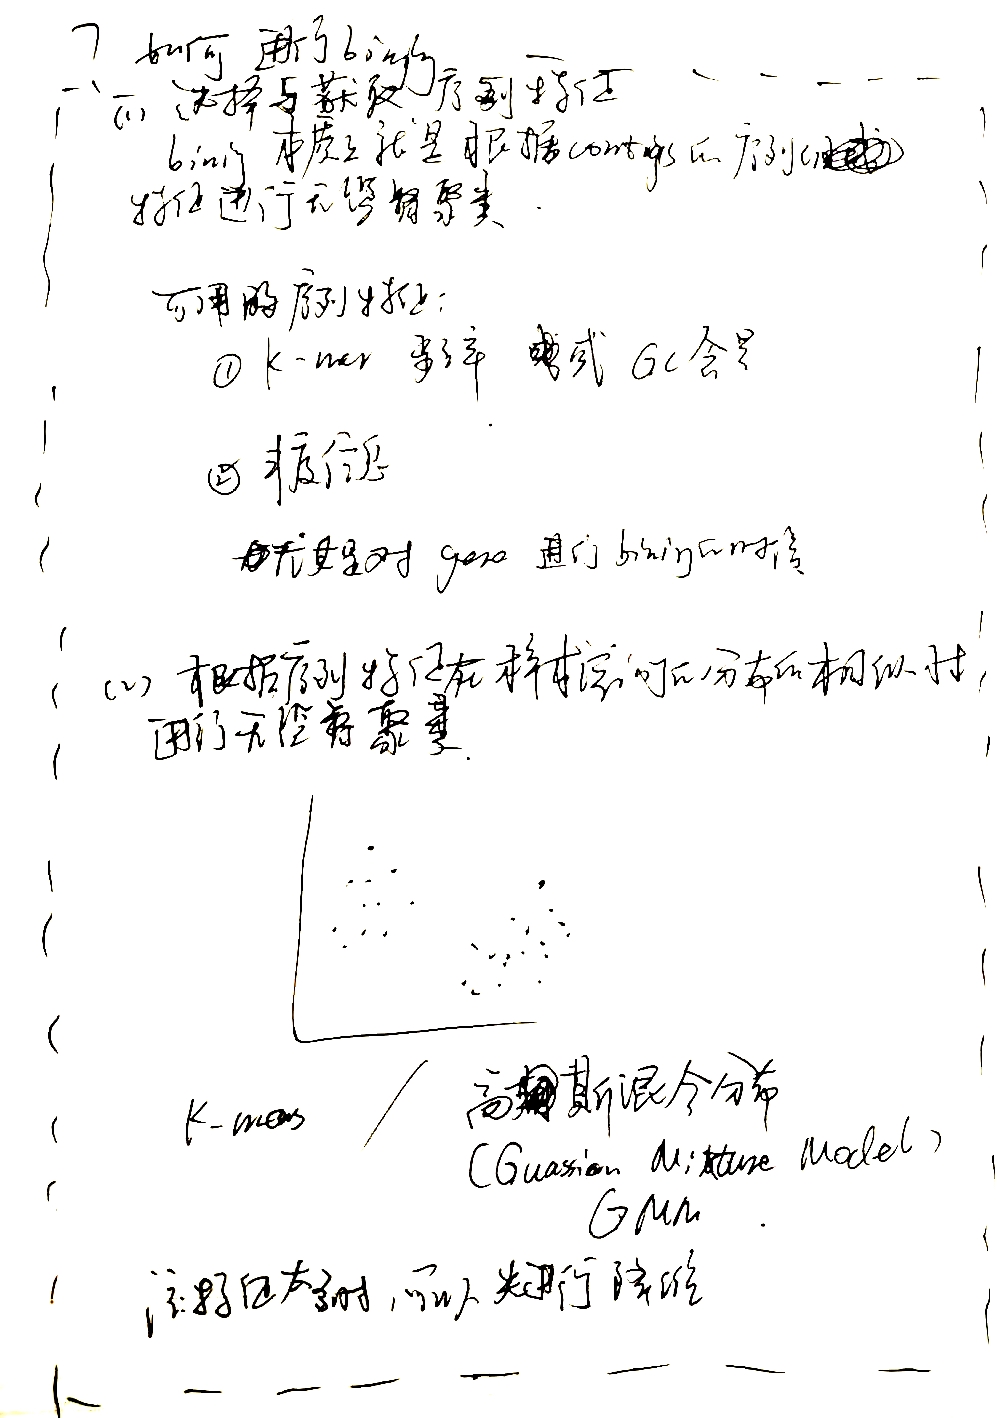 如何进行bining
(1) 选择与获取序列特征
bining 本质上就是根据contigs的序列(
特征进行无监督聚类.
可用的序列特征:
① K-mer 频率 或 GC含量
② 丰度信息
尤其是对 gene 进行bining的时候
(2) 根据序列特征在样本间的分布的相似性
进行无监督聚类.
K-means / 高斯混合分布
(Guassian Mixture Model)
GMM .
注:特征太多时,可以先进行降维